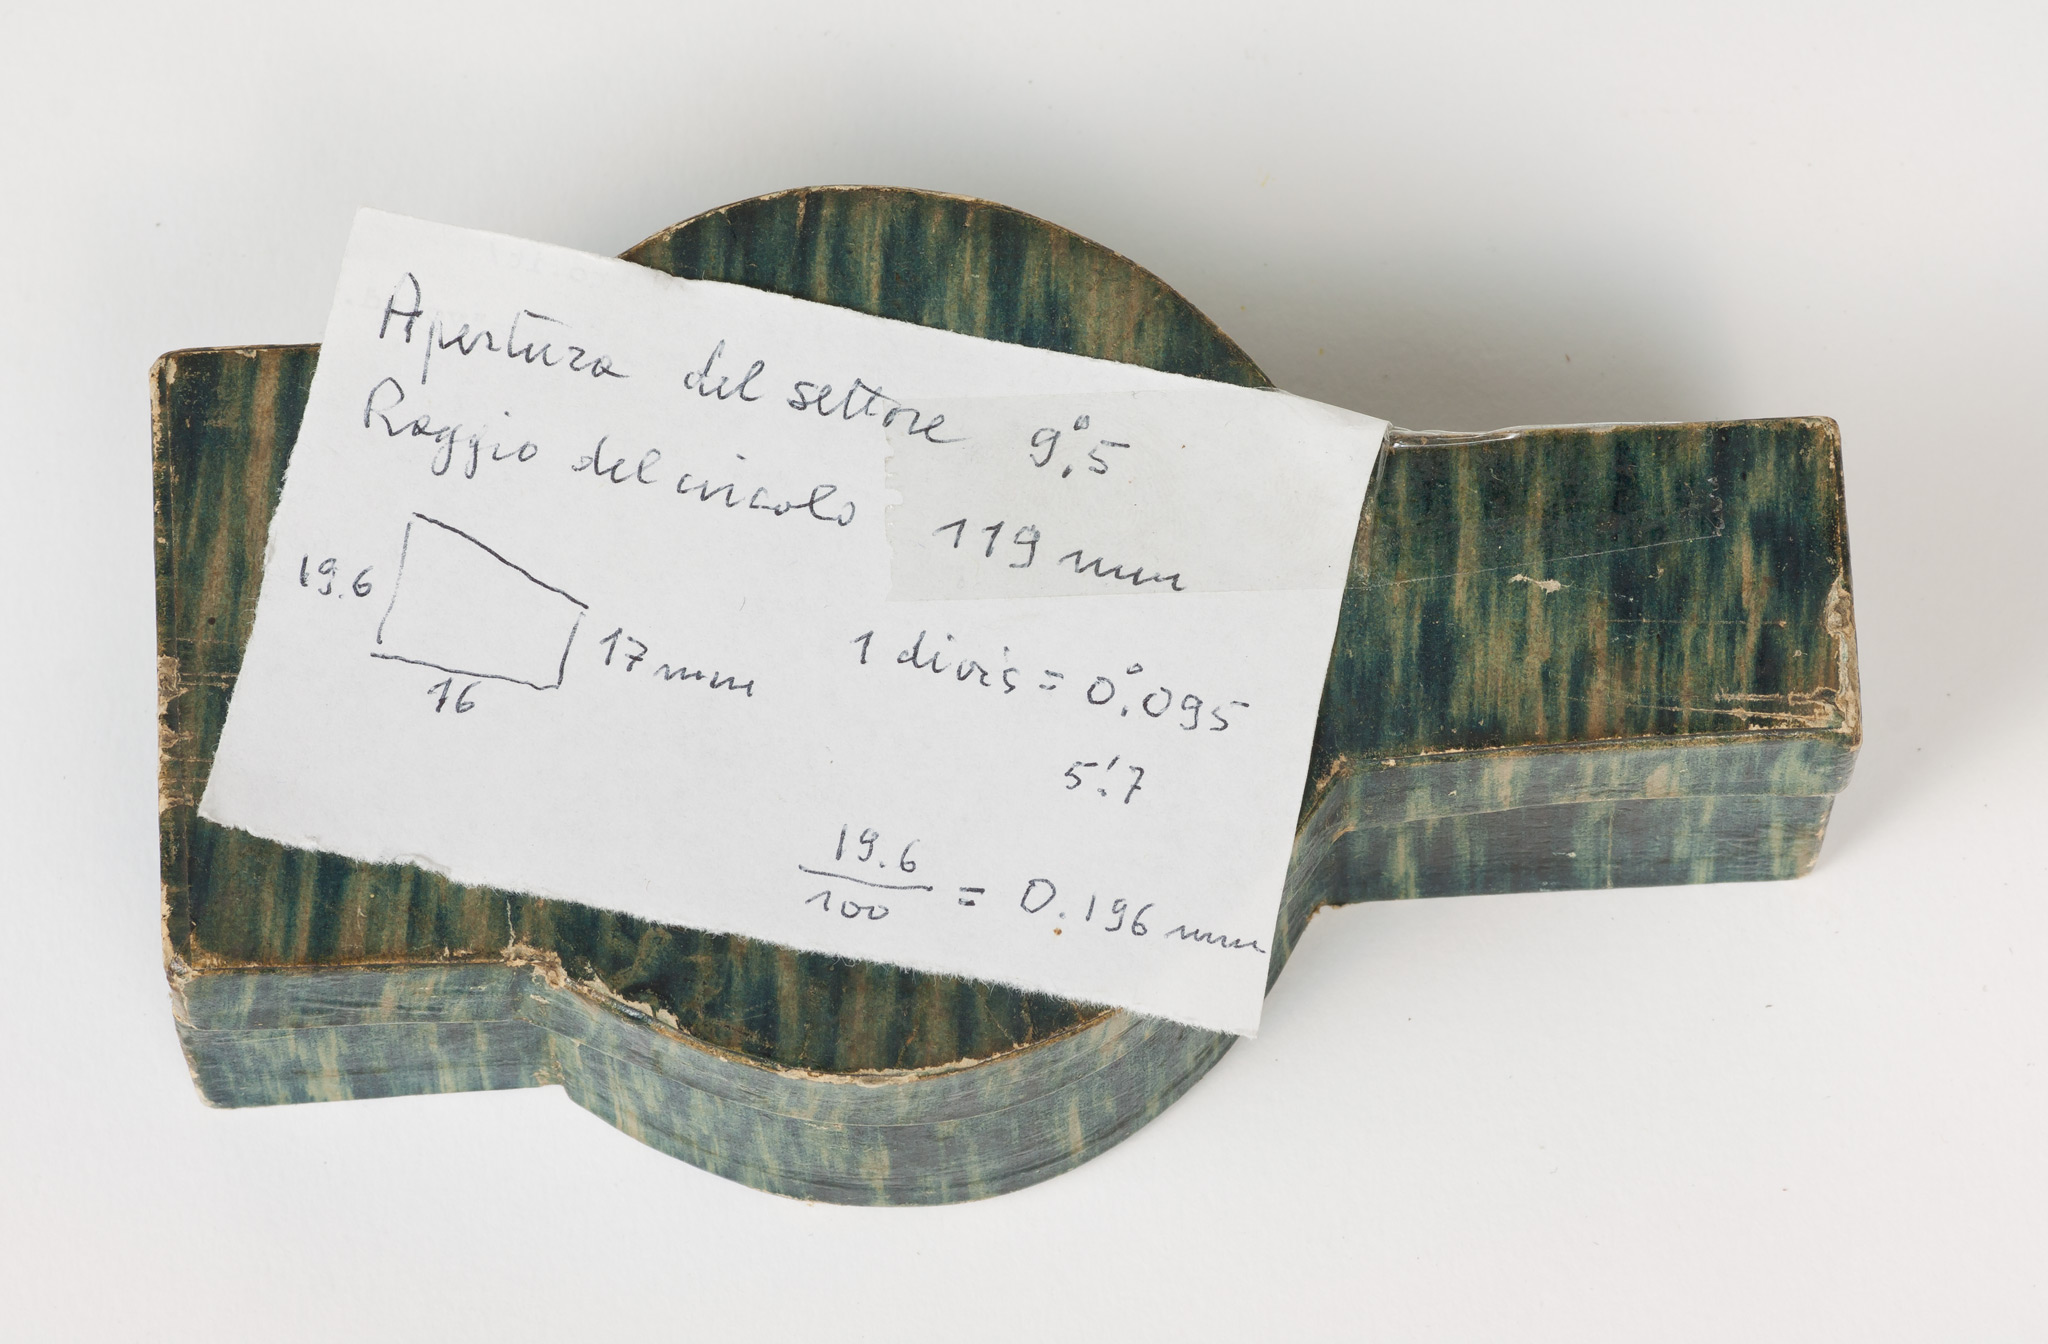 Apertura del settore 9°.5
Raggio del circolo 119 mm
19.6
17 mm
16
1 divis = 0°.095
5'.7
19.6
100
= 0.196 mm